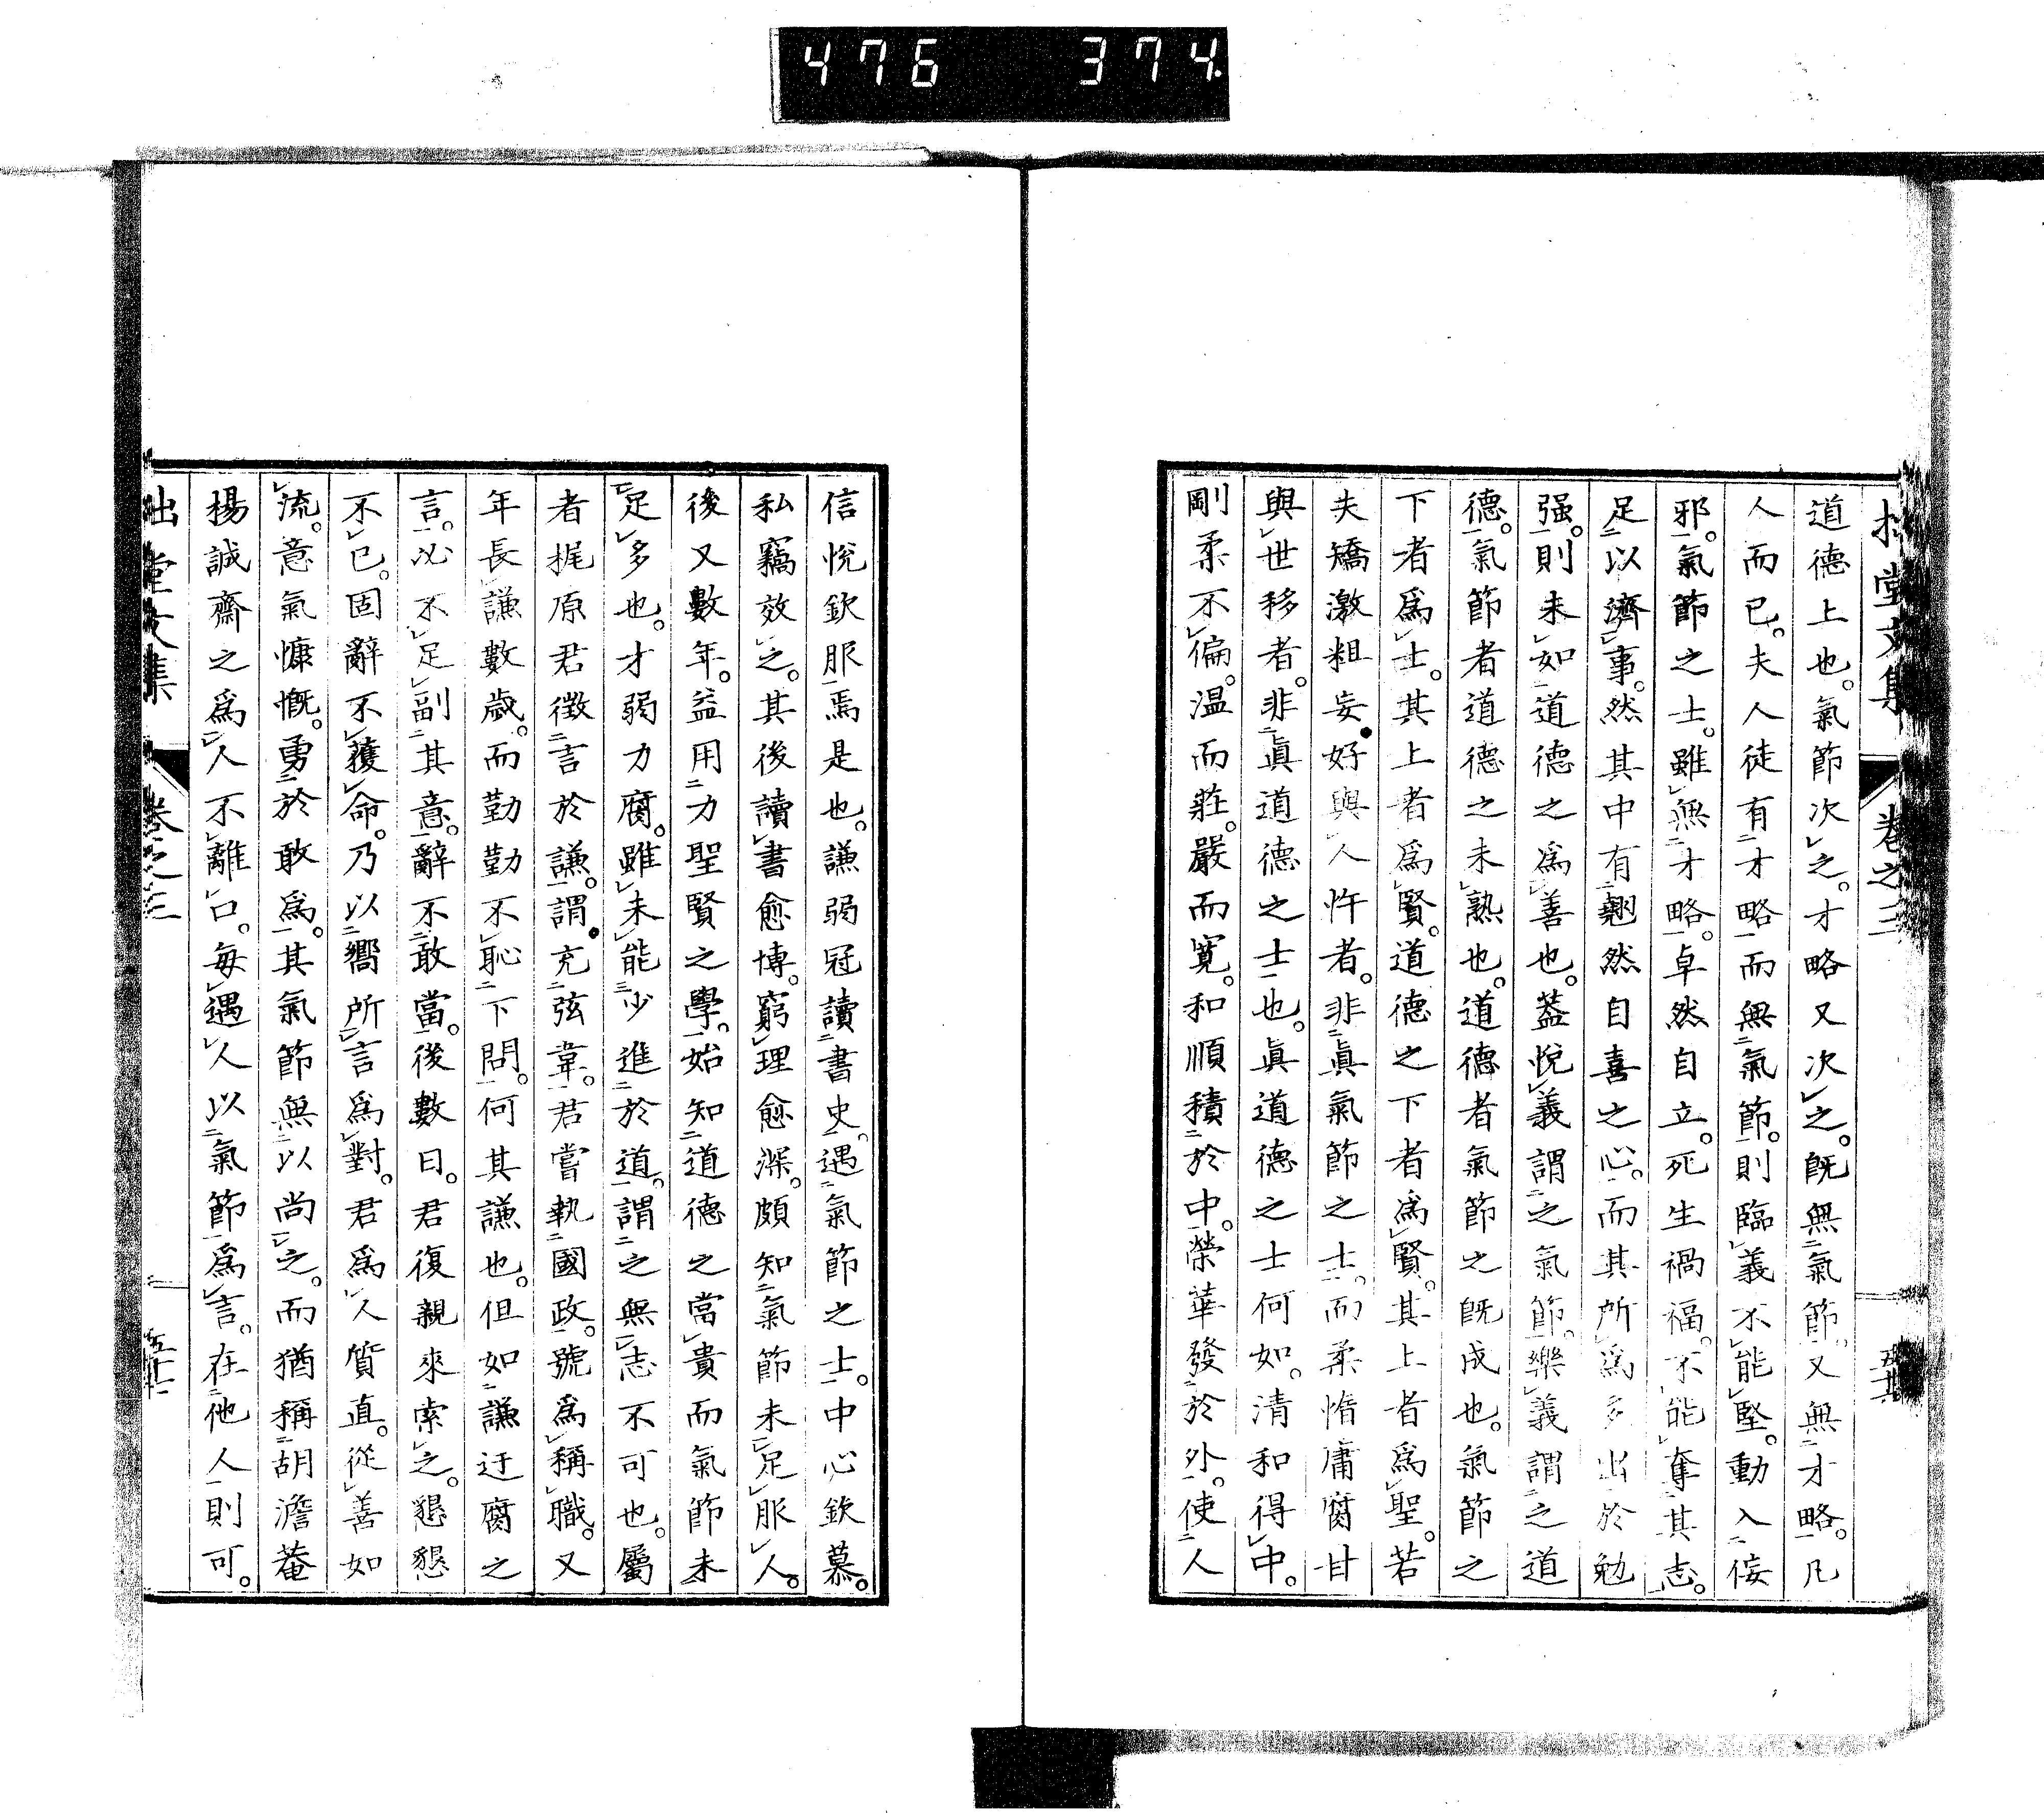 476 374.
拙堂文集 卷之三
道德上也。氣節次之。才略又次之。既無氣節。又無才略。凡
人而已。夫人徒有才略而無氣節。則臨義不能堅。動入佞
邪。氣節之士。雖無才略。卓然自立。死生禍福。不能奪其志。
足以濟事。然其中有翹然自喜之心。而其所爲多出於勉
强。則未如道德之爲善也。蓋悅義謂之氣節。樂義謂之道
德。氣節者道德之未熟也。道德者氣節之既成也。氣節之
下者爲士。其上者爲賢。道德之下者爲賢。其上者爲聖。若
夫矯激粗妄。好與人忤者。非眞氣節之士。而柔惰庸腐甘
與世移者。非眞道德之士也。眞道德之士何如。清和得中。
剛柔不偏。温而莊。嚴而寬。和順積於中。榮華發於外。使人
信悅欽服焉是也。謙弱冠讀書史。遇氣節之士。中心欽慕。
私竊效之。其後讀書愈博。窮理愈深。頗知氣節未足服人。
後又數年。益用力聖賢之學。始知道德之當貴而氣節未
足多也。才弱力腐。雖未能少進於道。謂之無志不可也。屬
者梶原君徵言於謙。謂充弦韋。君嘗執國政。號爲稱職。又
年長謙數歲。而勤勤不恥下問。何其謙也。但如謙迂腐之
言。必不足副其意。辭不敢當。後數日。君復親來索之。懇懇
不已。固辭不獲命。乃以嚮所言爲對。君爲人質直。從善如
流。意氣慷慨。勇於敢爲。其氣節無以尚之。而猶稱胡澹菴
楊誠齋之爲人不離口。每遇人以氣節爲言。在他人則可。
拙堂文集 卷之三